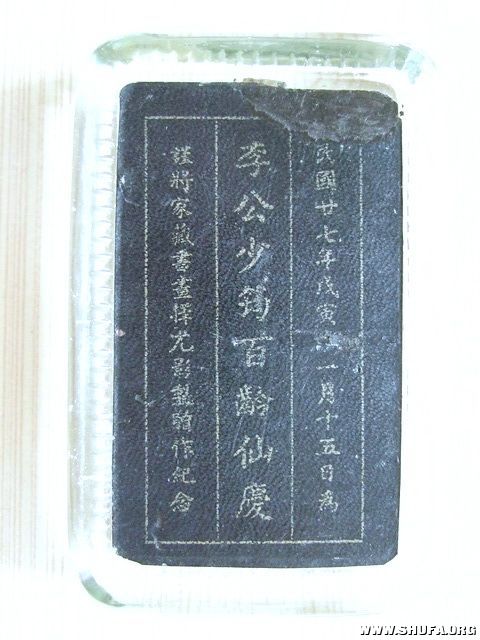 民國廿七年戊寅一月十五日為
李公少百齡仙慶
謹將家藏書畫擇尤影製作紀念
WWW.SHUFA.ORG